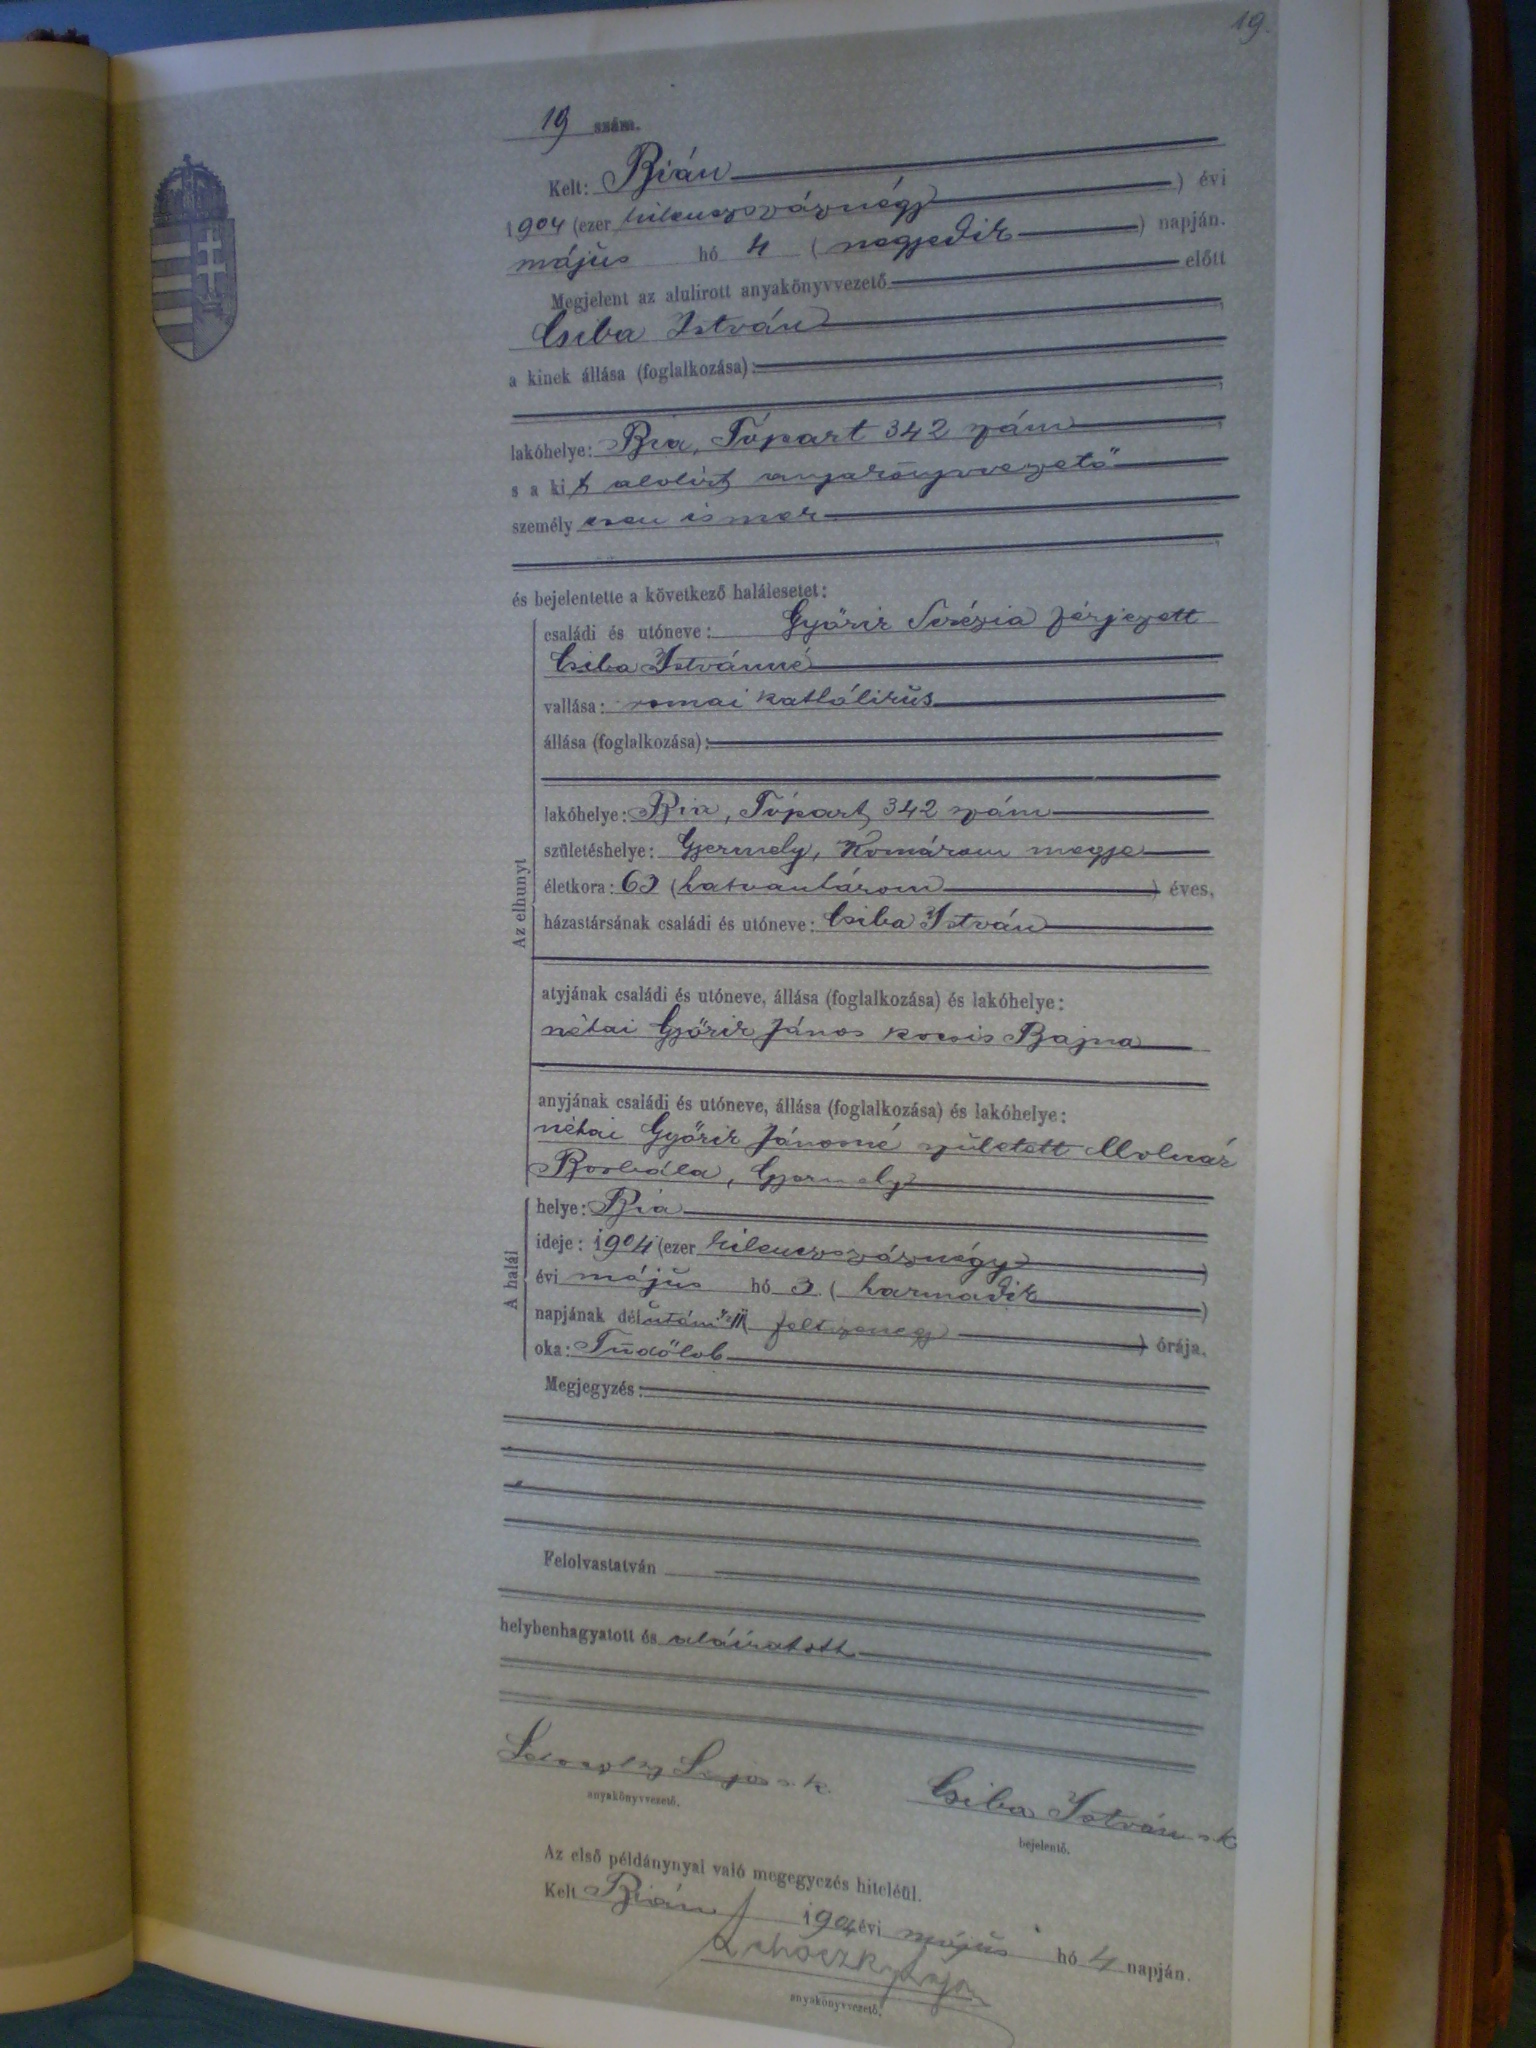 19.
19 szám.
Kelt: Bián
1904 (ezer kilenczszáznégy ) évi
május hó 4 ( negyedik ) napján.
Megjelent az alulirott anyakönyvvezető előtt
Csiba István
a kinek állása (foglalkozása):
lakóhelye: Bia, Tópart 342 szám
s a kit alolirt anyakönyvvezető
személyesen ismer
és bejelentette a következő halálesetet:
Az elhunyt
családi és utóneve: Győrik Terézia férjezett
Csiba Istvánné
vallása: romai katholikus
állása (foglalkozása):
lakóhelye: Bia, Tópart 342 szám
születéshelye: Gyermely, Komárom megye
életkora: 63 (hatvanhárom ) éves,
házastársának családi és utóneve: Csiba István
atyjának családi és utóneve, állása (foglalkozása) és lakóhelye:
néhai Győrik János kocsis Bajna
anyjának családi és utóneve, állása (foglalkozása) és lakóhelye:
néhai Győrik Jánosné született Molnár
Borbála, Gyermely
A halál
helye: Bia
ideje: 1904 (ezer kilenczszáznégy )
évi május hó 3 ( harmadik )
napjának délutáni ( ) órája.
oka: Tüdőlob
Megjegyzés:
Felolvastatván
helybenhagyatott és aláiratott
Lajos s. k.
anyakönyvvezető.
Csiba István s k
bejelentő.
Az első példánynyal való megegyezés hiteléül.
Kelt Bián 1904 évi május hó 4 napján.
Lajos
anyakönyvvezető.